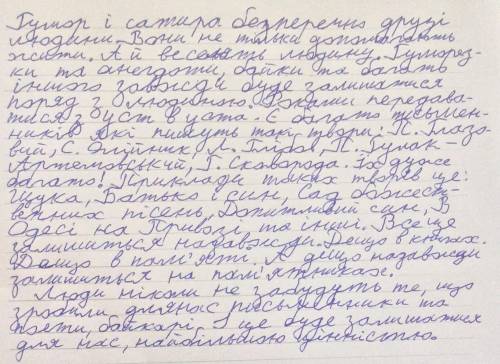 Гумор і сатира безперечно друзі
людини. Вони не тільки допомагають
жити. А й веселять людину. Гуморез-
ки та анегдоти, байки та багать
іншого завжди буде залишатися
поряд з людиною. Роками передава-
тися з уст в уста. Є багато письмен-
ників які пишуть такі твори: П. Глазо-
вий, С. Олійник, Л. Глібов, П. Гулак-
Артемовський, Г. Сковорода. Їх дуже
багато! Приклади таких творів це:
Щука, Батько і син, Сад божест-
венних пісень, Допитливий син, В
Одесі на Привозі та інші. Все це
залишиться назавжди. Дещо в книгах.
Дещо в пам'яті. А дещо назавжди
залишиться на пам'ятниках.
Люди ніколи не забудуть те, що
зробили для нас письменники та
поети, байкарі. І це буде залишатися
для нас, найбільшою цінністю.